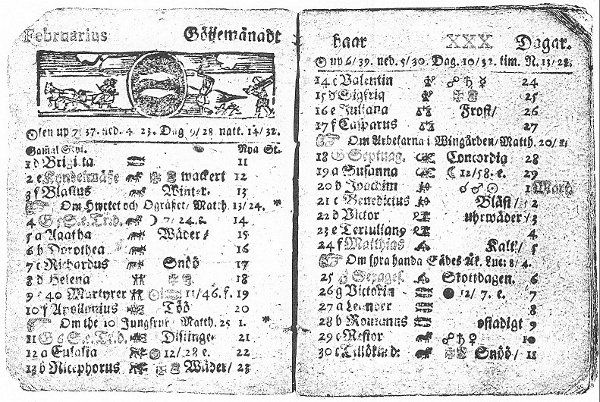 Februarius Göijemånadt
Solen up 7/37. ned. 4 23. Dag 9/28 natt. 14/32.
Gamal Styl. Nya St.
1 d Brigitta 11
2 e wackert 12
3 f Blasius Winter. 13
Om Hwetet och Ogräset / Matth. 13/24.
4 7/24. e. 14
5 a Agatha Wäder / 15
6 b Dorothea 16
7 c Richardus Snöö 17
8 d Helena 18
9 e 40 Martyrer 11/46. f. 19
10 f Apollonius Töö 20
Om the 10 Jungfrur Matth. 25 1.
11 21
12 a Eulalia 12/28 e. 22
13 b Nicephorus Wäder / 23
haar XXX Dagar.
up 6/39. ned. 5/30. Dag. 10/32. tim. N. 13/28.
14 c Valentin 24
15 d Sigfrid 25
16 e Juliana Frost / 26
17 f 27
Om Arbetarna i Wingården / Matth. 20/1.
18 Septuag. Concordia 28
19 a Susanna 12/58. e. 29
20 b Joachim 1
21 c Benedictus Blåst / 2
22 d Victor uhrwäder / 3
23 e 4
24 f Matthias Kalt / 5
Om fyra handa Sädes Åk. Luc. 8/4.
25 Sexages. Skottdagen. 6
26 g Victorin 12/7. e. 7
27 a Leander 8
28 b Romanus ostadigt 9
29 c Nestor 10
30 c Snöö / 11